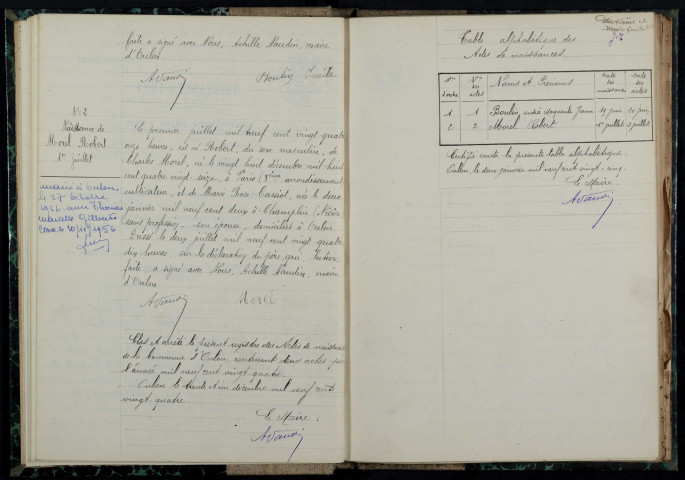 faite a signé avec Nous, Achille Naudin, maire
d'Oulon.
N° 2
Naissance de
Morel Robert
1er juillet
Le premier juillet mil neuf cent vingt quatre
onze heures, est né Robert, du sexe masculin, de
Charles Morel, né le vingt huit décembre mil huit
cent quatre vingt seize, à Paris arrondissement
cultivateur, et de Marie Cassiot, née le deux
janvier mil neuf cent deux à Champlin (Nièvre)
sans profession, son épouse, domiciliés à Oulon.
Dressé le deux juillet mil neuf cent vingt quatre
dix heures, sur la déclaration du père qui, lecture
faite, a signé avec Nous, Achille Naudin, maire
d'Oulon.
Morel
marié à Oulon
le 27 octobre
1956 avec
Gilberte
10/11/1956
Clos et arrêté le présent registre des Actes de naissance
de la commune d'Oulon, contenant deux actes pour
l'année mil neuf cent vingt quatre.
Oulon le trente et un décembre mil neuf cent
vingt quatre
Le Maire.
Table alphabétique des
Actes de naissances.
N° d'ordre N° des actes Noms et Prénoms Date des naissances Date des actes
1 1 Marguerite Jeanne juin juin
2 2 Morel Robert 1er juillet 2 juillet
Certifié exacte la présente table alphabétique.
Oulon le deux janvier mil neuf cent vingt-cinq.
Le Maire.